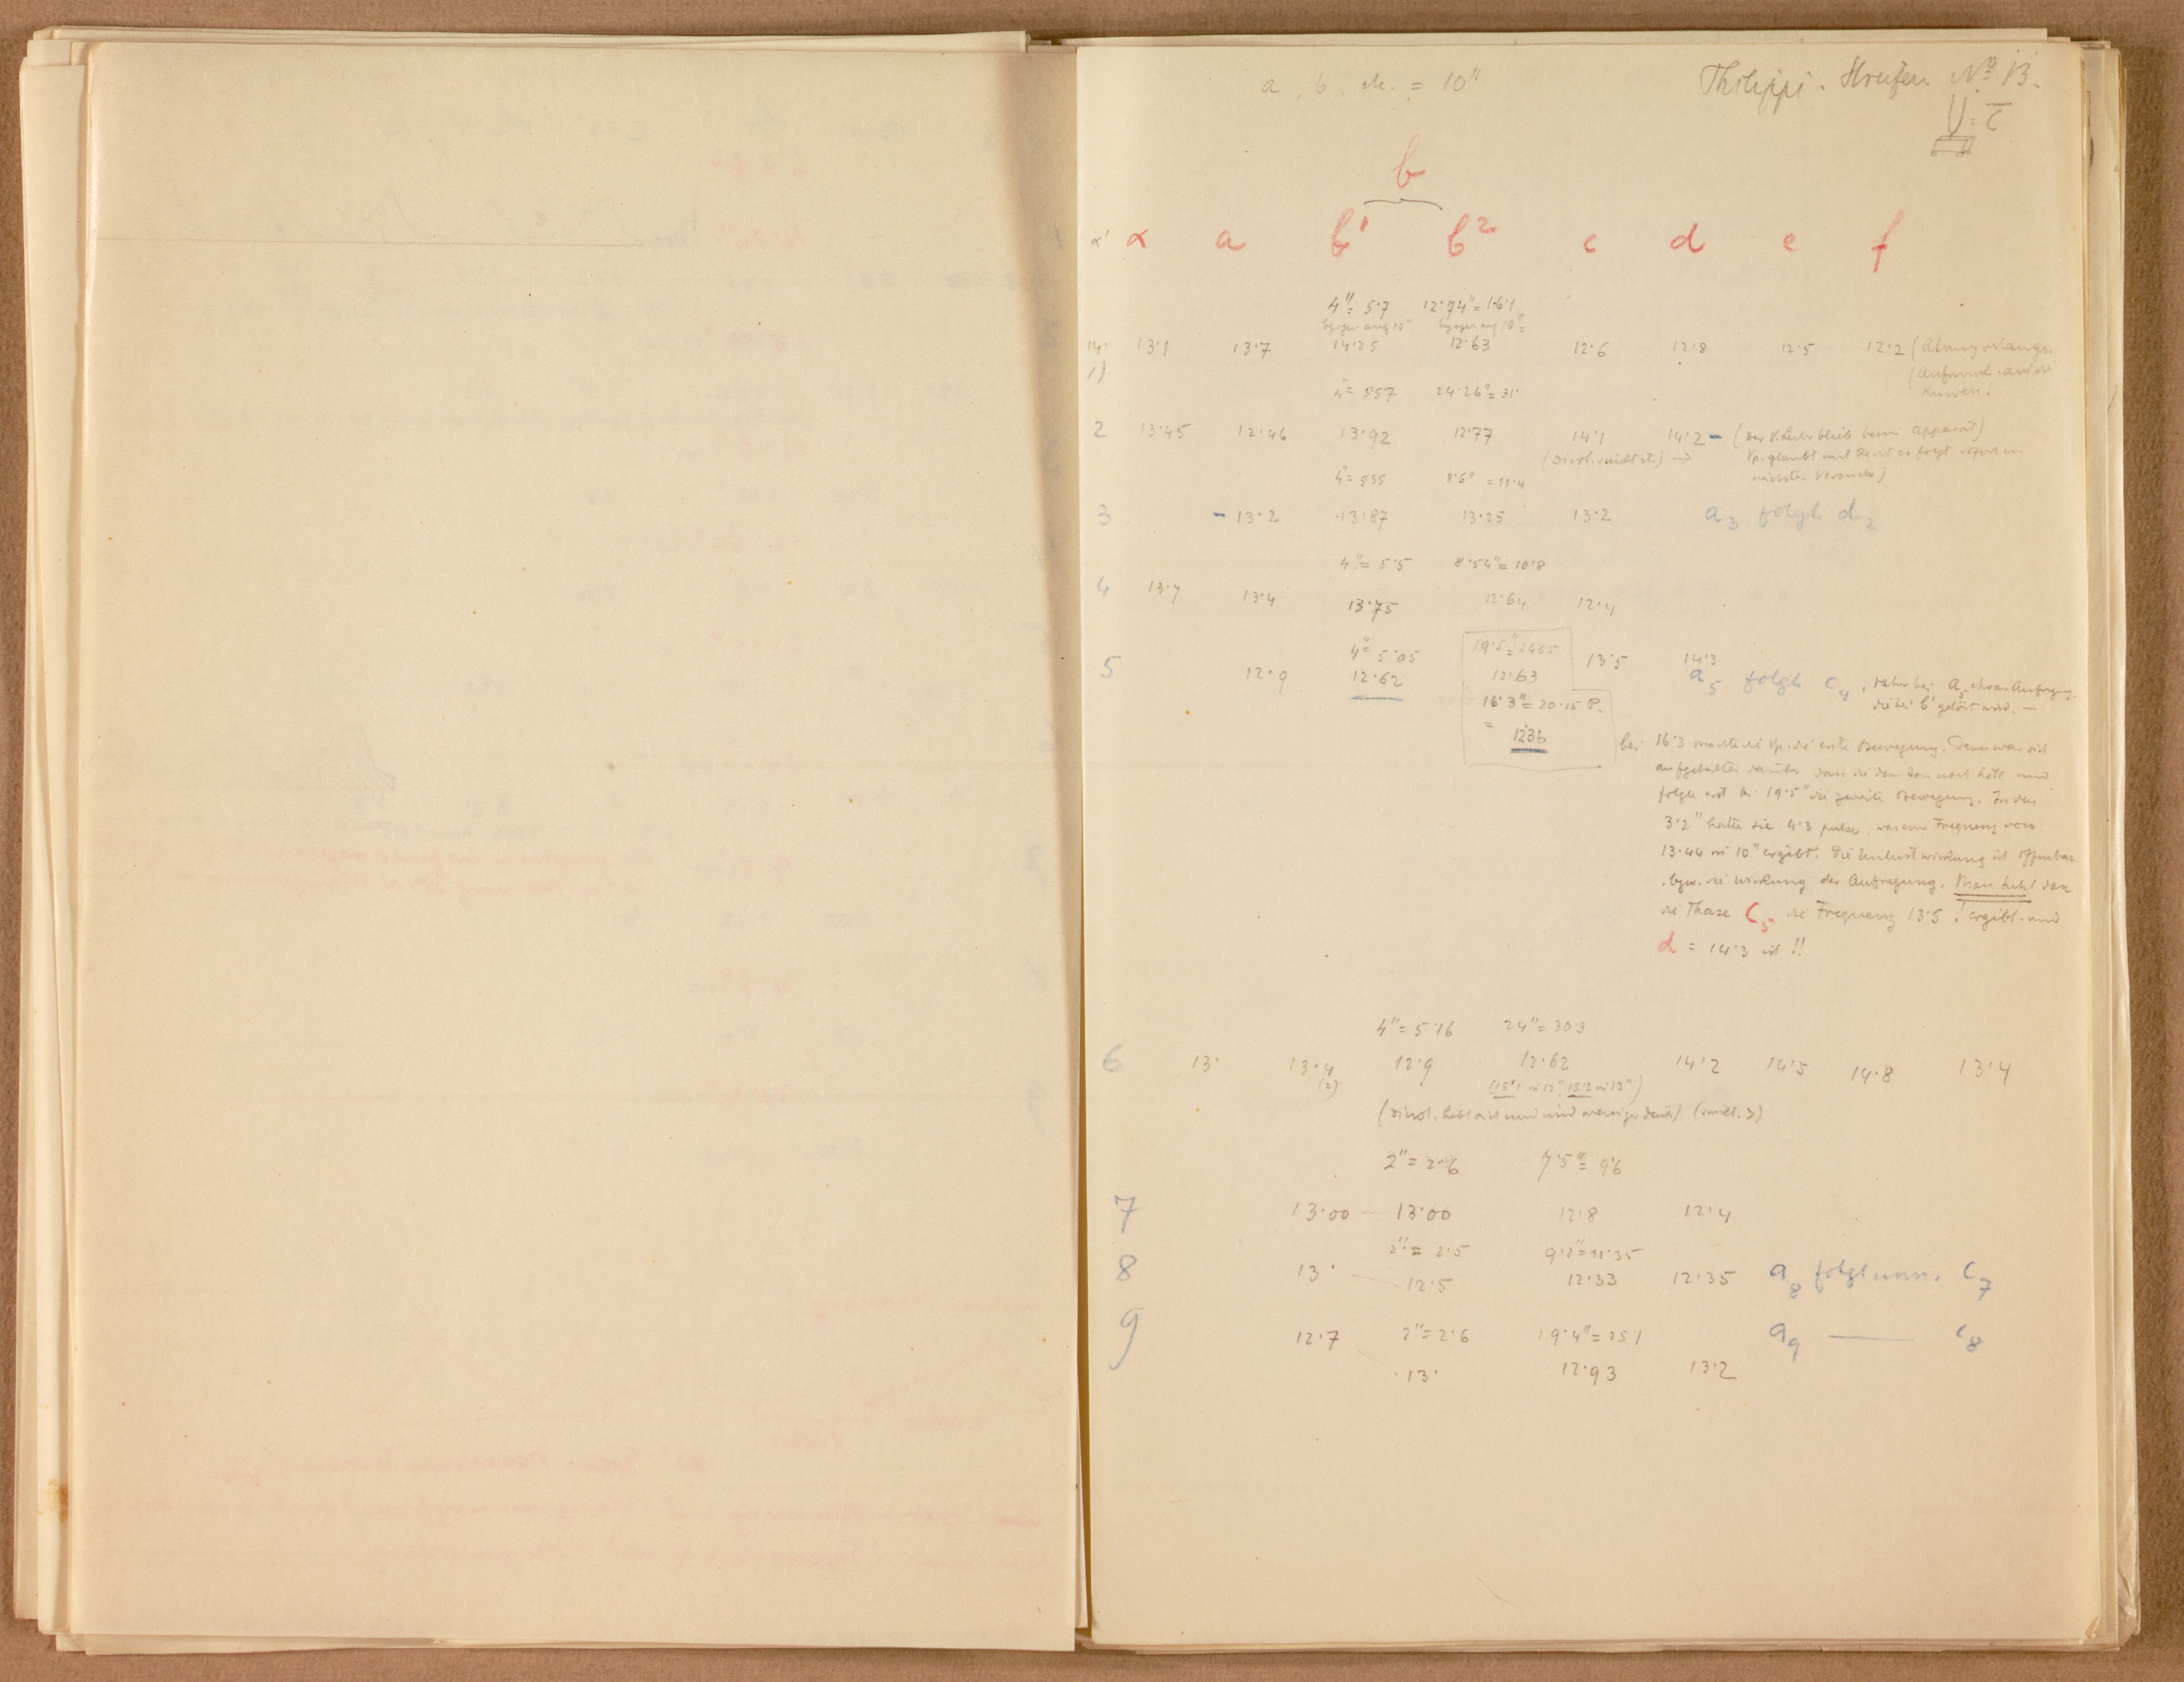 a, b, etc. = 10"
Philippi. Streifen No 13.
U = c
b
α' α a b¹ b² c d e f
4" = 5·7 12·74" = 16·1
bezogen auf 10" bezogen auf 10" =
14· 13·1 13·7 14·25 12·63 12·6 12·8 12·5 12·2 (Atmg verlangs.
1) (Aufmerk. auf d.
Kurven.
4" = 557 24·26" = 31·
2 13·45 12·46 13·92 12·77 14·1 14·2 – (Der V.Leiter blieb beim Apparat)
(Dicrot. nicht st.) → Vp. glaubt mit Recht es folgt sofort ein
nächster Versuch)
4" = 555 8·6" = 11·4
3 – 13·2 13·87 13·25 13·2 a₃ folgt d₂
4" = 5·5 8·54" = 10·8
4 13·7 13·4 13·75 12·64 12·4
4" = 5·05 19·5" = 2465 13·5 14·3
5 12·9 12·62 12·63 a₅ folgt c₄, daher bei a₅ etwas Aufregg.
die bei b' gelöst wird. —
16·3" = 20·15 P.
= 1236
bei 16·3 machte die Vp. die erste Bewegung. Dann war sich
aufgehalten darüber dass sie den Ton noch hört und
folgte erst bei 19·5" die zweite Bewegung. In den
3·2" hatte sie 4·3 pulse, was eine Frequenz von
13·44 in 10" ergibt. Die Unlustwirkung ist offenbar
. bzw. die Wirkung der Aufregung. Man sieht dass
die Phase c₅ die Frequenz 13·5 ! ergibt. und
d = 14·3 ist !!
4" = 5·16 24" = 30·3
6 13· 13·4 12·9 12·62 14·2 14·5 14·8 13·4
(2) (15·1 in 12", 15·2 in 12")
(Dicrot. hebt sich und wird weniger deutl.) (nicht. >)
2" = 2·6 7·5" = 9·6
7 13·00 — 13·00 12·8 12·4
2" = 2·5 9·2" = 11·35
8 13· 12·5 12·33 12·35 a₈ folgt unm. c₇
9 12·7 2" = 2·6 19·4" = 25·1 a₉ —— c₈
13· 12·93 13·2